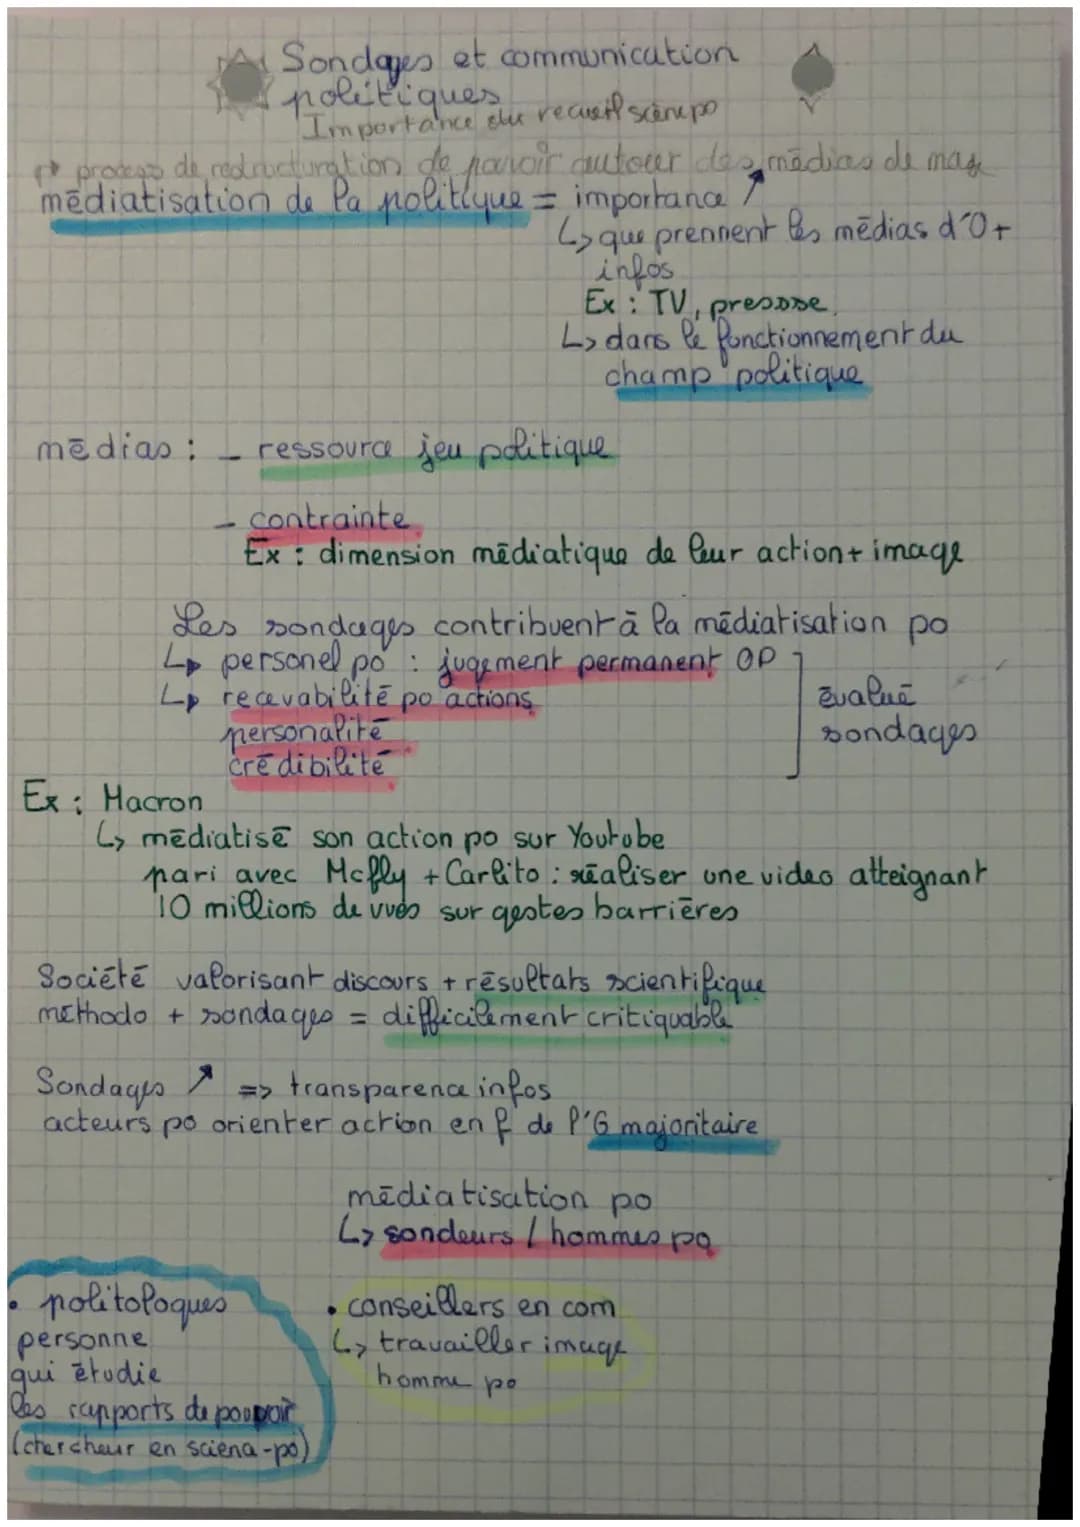 Sondages et communication
politiques
Importance du recueil scène po
process de redructuration de pouvoir autour des médias de mass
médiatisation de la politique = importance ↗
↳ que prennent les médias d'O +
infos
Ex : TV, pressse
↳ dans le fonctionnement du
champ politique
médias : - ressource jeu politique
- contrainte
Ex : dimension médiatique de leur action + image
Les sondages contribuent à la médiatisation po
↳ personel po : jugement permanent OP
↳ recevabilité po actions
personalité
crédibilité
évalué
sondages
Ex : Macron
↳ médiatisé son action po sur Youtube
pari avec Mcfly + Carlito : réaliser une video atteignant
10 millions de vues sur gestes barrières
Société valorisant discours + résultats scientifique
méthodo + sondages = difficilement critiquable
Sondages ↗ => transparence infos
acteurs po orienter action en f de l'G majoritaire
médiatisation po
↳ sondeurs / hommes po
• politologues
personne
qui étudie
les rapports de pouvoir
(chercheur en science-po)
• conseillers en com
↳ travailler image
homme po